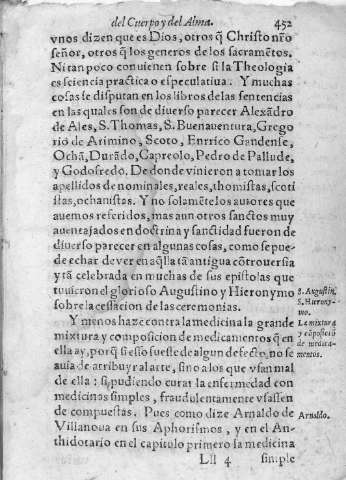 del Cuerpo y del Alma. 452
vnos dizen que es Dios, otros q̃ Christo nr̃o
señor, otros q̃ los generos de los sacramẽtos.
Ni tan poco conuienen sobre si la Theologia
es sciencia practica o especulatiua. Y muchas
cosas se disputan en los libros de las sentencias
en las quales son de diuerso parecer Alexãdro
de Ales, S. Thomas, S. Buenauentura, Grego
rio de Arimino, Scoto, Enrrico Gandense,
Ochã, Durãdo, Capreolo, Pedro de Pallude,
y Godofredo. De donde vinieron a tomar los
apellidos de nominales, reales, thomistas, scoti
stas, ochanistas. Y no solamẽte los autores que
auemos referidos, mas aun otros sanctos muy
auentajados en doctrina y sanctidad fueron de
diuerso parecer en algunas cosas, como se pue-
de echar de ver en aq̃lla tã antigua cõtrouersia
y tã celebrada en muchas de sus epistolas que
tuuieron el glorioso Augustino y Hieronymo
sobre la cessacion de las ceremonias.
S. Augustin.
S. Hierony-
mo.
Y menos haze contra la medicina la grande
mixtura y composicion de medicamentos q̃ en
ella ay, porq̃ si esso fuesse de algun defecto, no se
auia de atribuyr al arte, sino a los que vsan mal
de ella: si pudiendo curar la enfermedad con
medicinas simples, fraudulentamente vsassen
de compuestas. Pues como dize Arnaldo de
Villanoua en sus Aphorismos, y en el An-
thidotario en el capitulo primero la medicina
La mixtura
y cõposició
de medica-
mentos.
Arnaldo.
Lll 4 simple